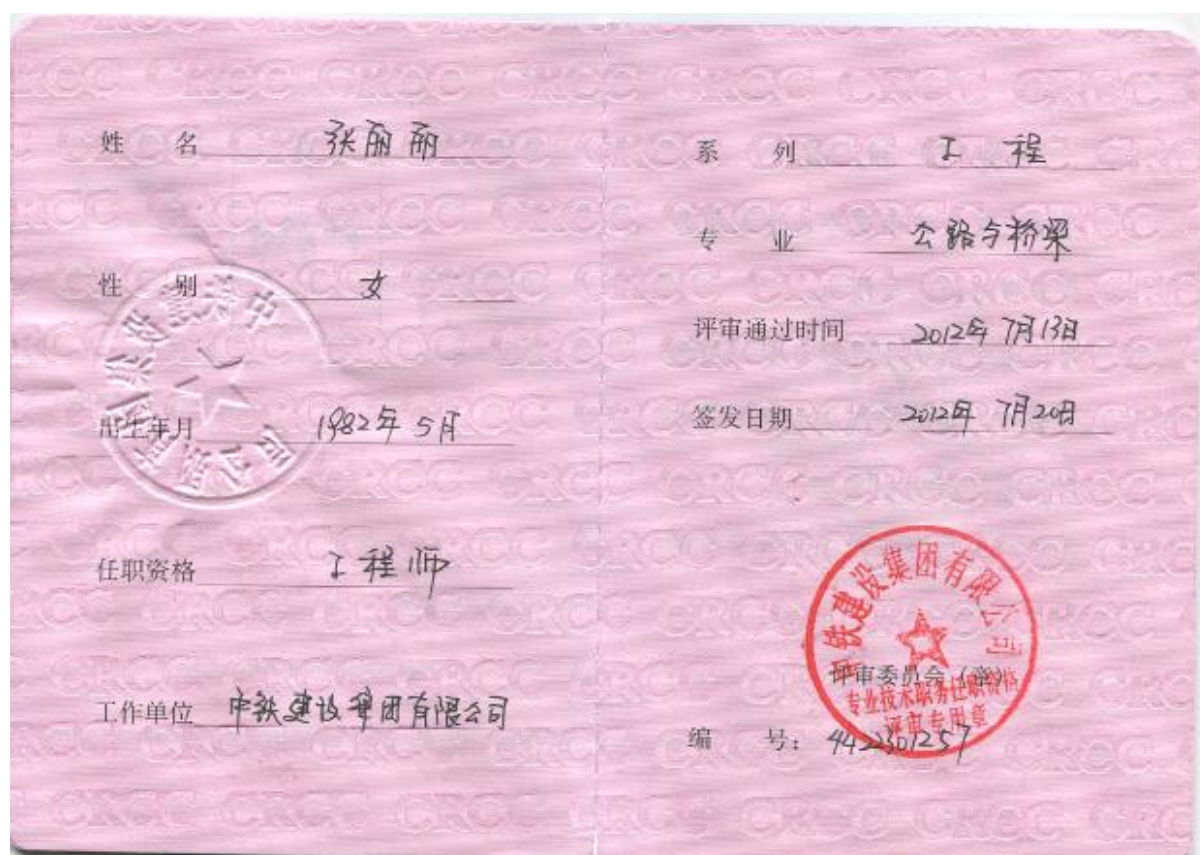 姓 名 张丽丽
性 别 女
出生年月 1982年5月
任职资格 工程师
工作单位 中铁建设集团有限公司
系 列 工程
专 业 公路与桥梁
评审通过时间 2012年7月13日
签发日期 2012年7月20日
中铁建设集团有限公司
评审委员会(章)
专业技术职务任职资格
评审专用章
编 号: 4422301257
CRCC